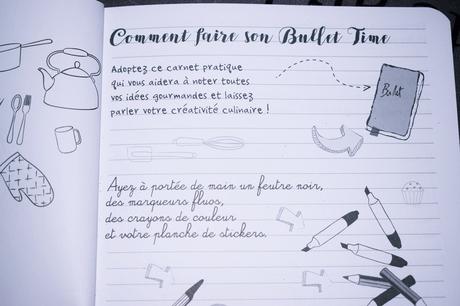 Comment faire son Bullet Time
Adoptez ce carnet pratique
qui vous aidera à noter toutes
vos idées gourmandes et laissez
parler votre créativité culinaire !
Bulet
Ayez à portée de main un feutre noir,
des marqueurs fluos,
des crayons de couleur
et votre planche de stickers.